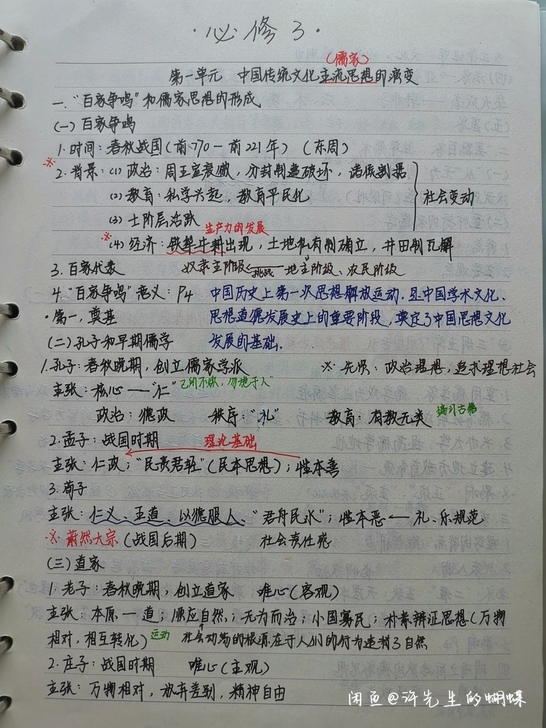 ·必修3·
(儒家)
第一单元 中国传统文化主流思想的演变
一.“百家争鸣”和儒家思想的形成
(一)百家争鸣
1.时间:春秋战国(前770-前221年)(东周)
※2.背景:(1)政治:周王室衰微,分封制遭破坏,诸侯割据
(2)教育:私学兴起,教育平民化
社会变动
(3)士阶层活跃
生产力的发展
※(4)经济:铁犁牛耕出现,土地私有制确立,井田制瓦解
3.百家代表 奴隶主阶级←挑战 地主阶级、农民阶级
4.“百家争鸣”意义:P4 中国历史上第一次思想解放运动.是中国学术文化、
·第一,奠基 思想道德发展史上的重要阶段,奠定了中国思想文化
(二)孔子和早期儒学 发展的基础.
1.孔子:春秋晚期,创立儒家学派 ※:先误:政治理想,追求理想社会
主张:核心——“仁” 己所不欲,勿施于人
政治:德政 秩序:“礼” 教育:有教无类 编订古籍
2.孟子:战国时期 理论基础
主张:仁政;“民贵君轻”(民本思想);性本善
3.荀子
主张:仁义、王道,以德服人、“君舟民水”;性本恶←礼、乐规范
※萧然大宗(战国后期) 社会责任感
(三)道家
1.老子:春秋晚期,创立道家 唯心(客观)
主张:本原—道;顺应自然,;无为而治;小国寡民;朴素辩证思想(万物
相对,相互转化)运动 社会动荡的根源在于人们的行为违背了自然
2.庄子:战国时期 唯心(主观)
主张:万物相对,放弃差别,精神自由
闲鱼@许先生的蝴蝶